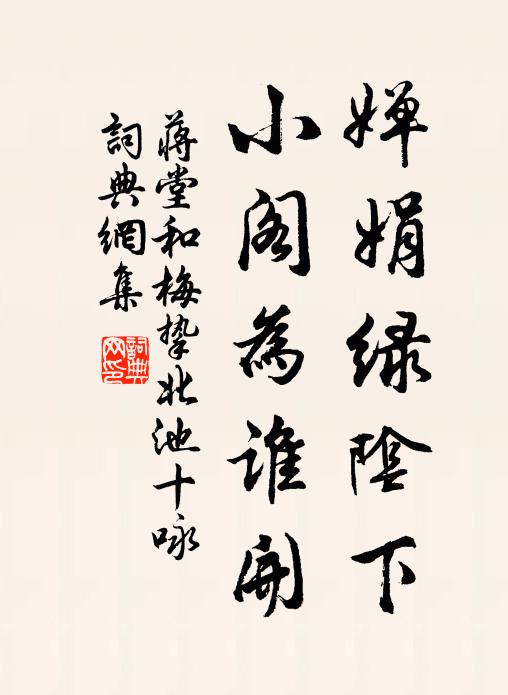 嬋娟綠陰下
小閣為誰開
蔣堂和梅摯北池十咏
詞典網集
詞典
网印